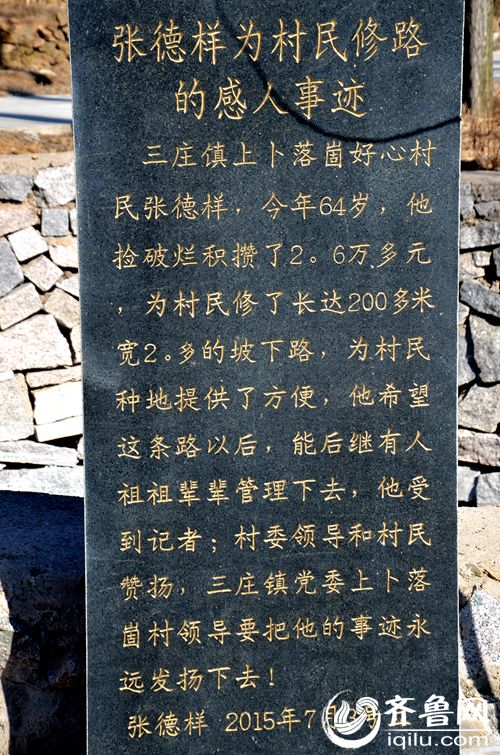 张德样为村民修路
的感人事迹
三庄镇上卜落崮好心村
民张德样，今年64岁，他
捡破烂积攒了2。6万多元
，为村民修了长达200多米
宽2。多的坡下路，为村民
种地提供了方便，他希望
这条路以后，能后继有人
祖祖辈辈管理下去，他受
到记者；村委领导和村民
赞扬，三庄镇党委上卜落
崮村领导要把他的事迹永
远发扬下去！
张德样 2015年7月
齐鲁网
iqilu.com